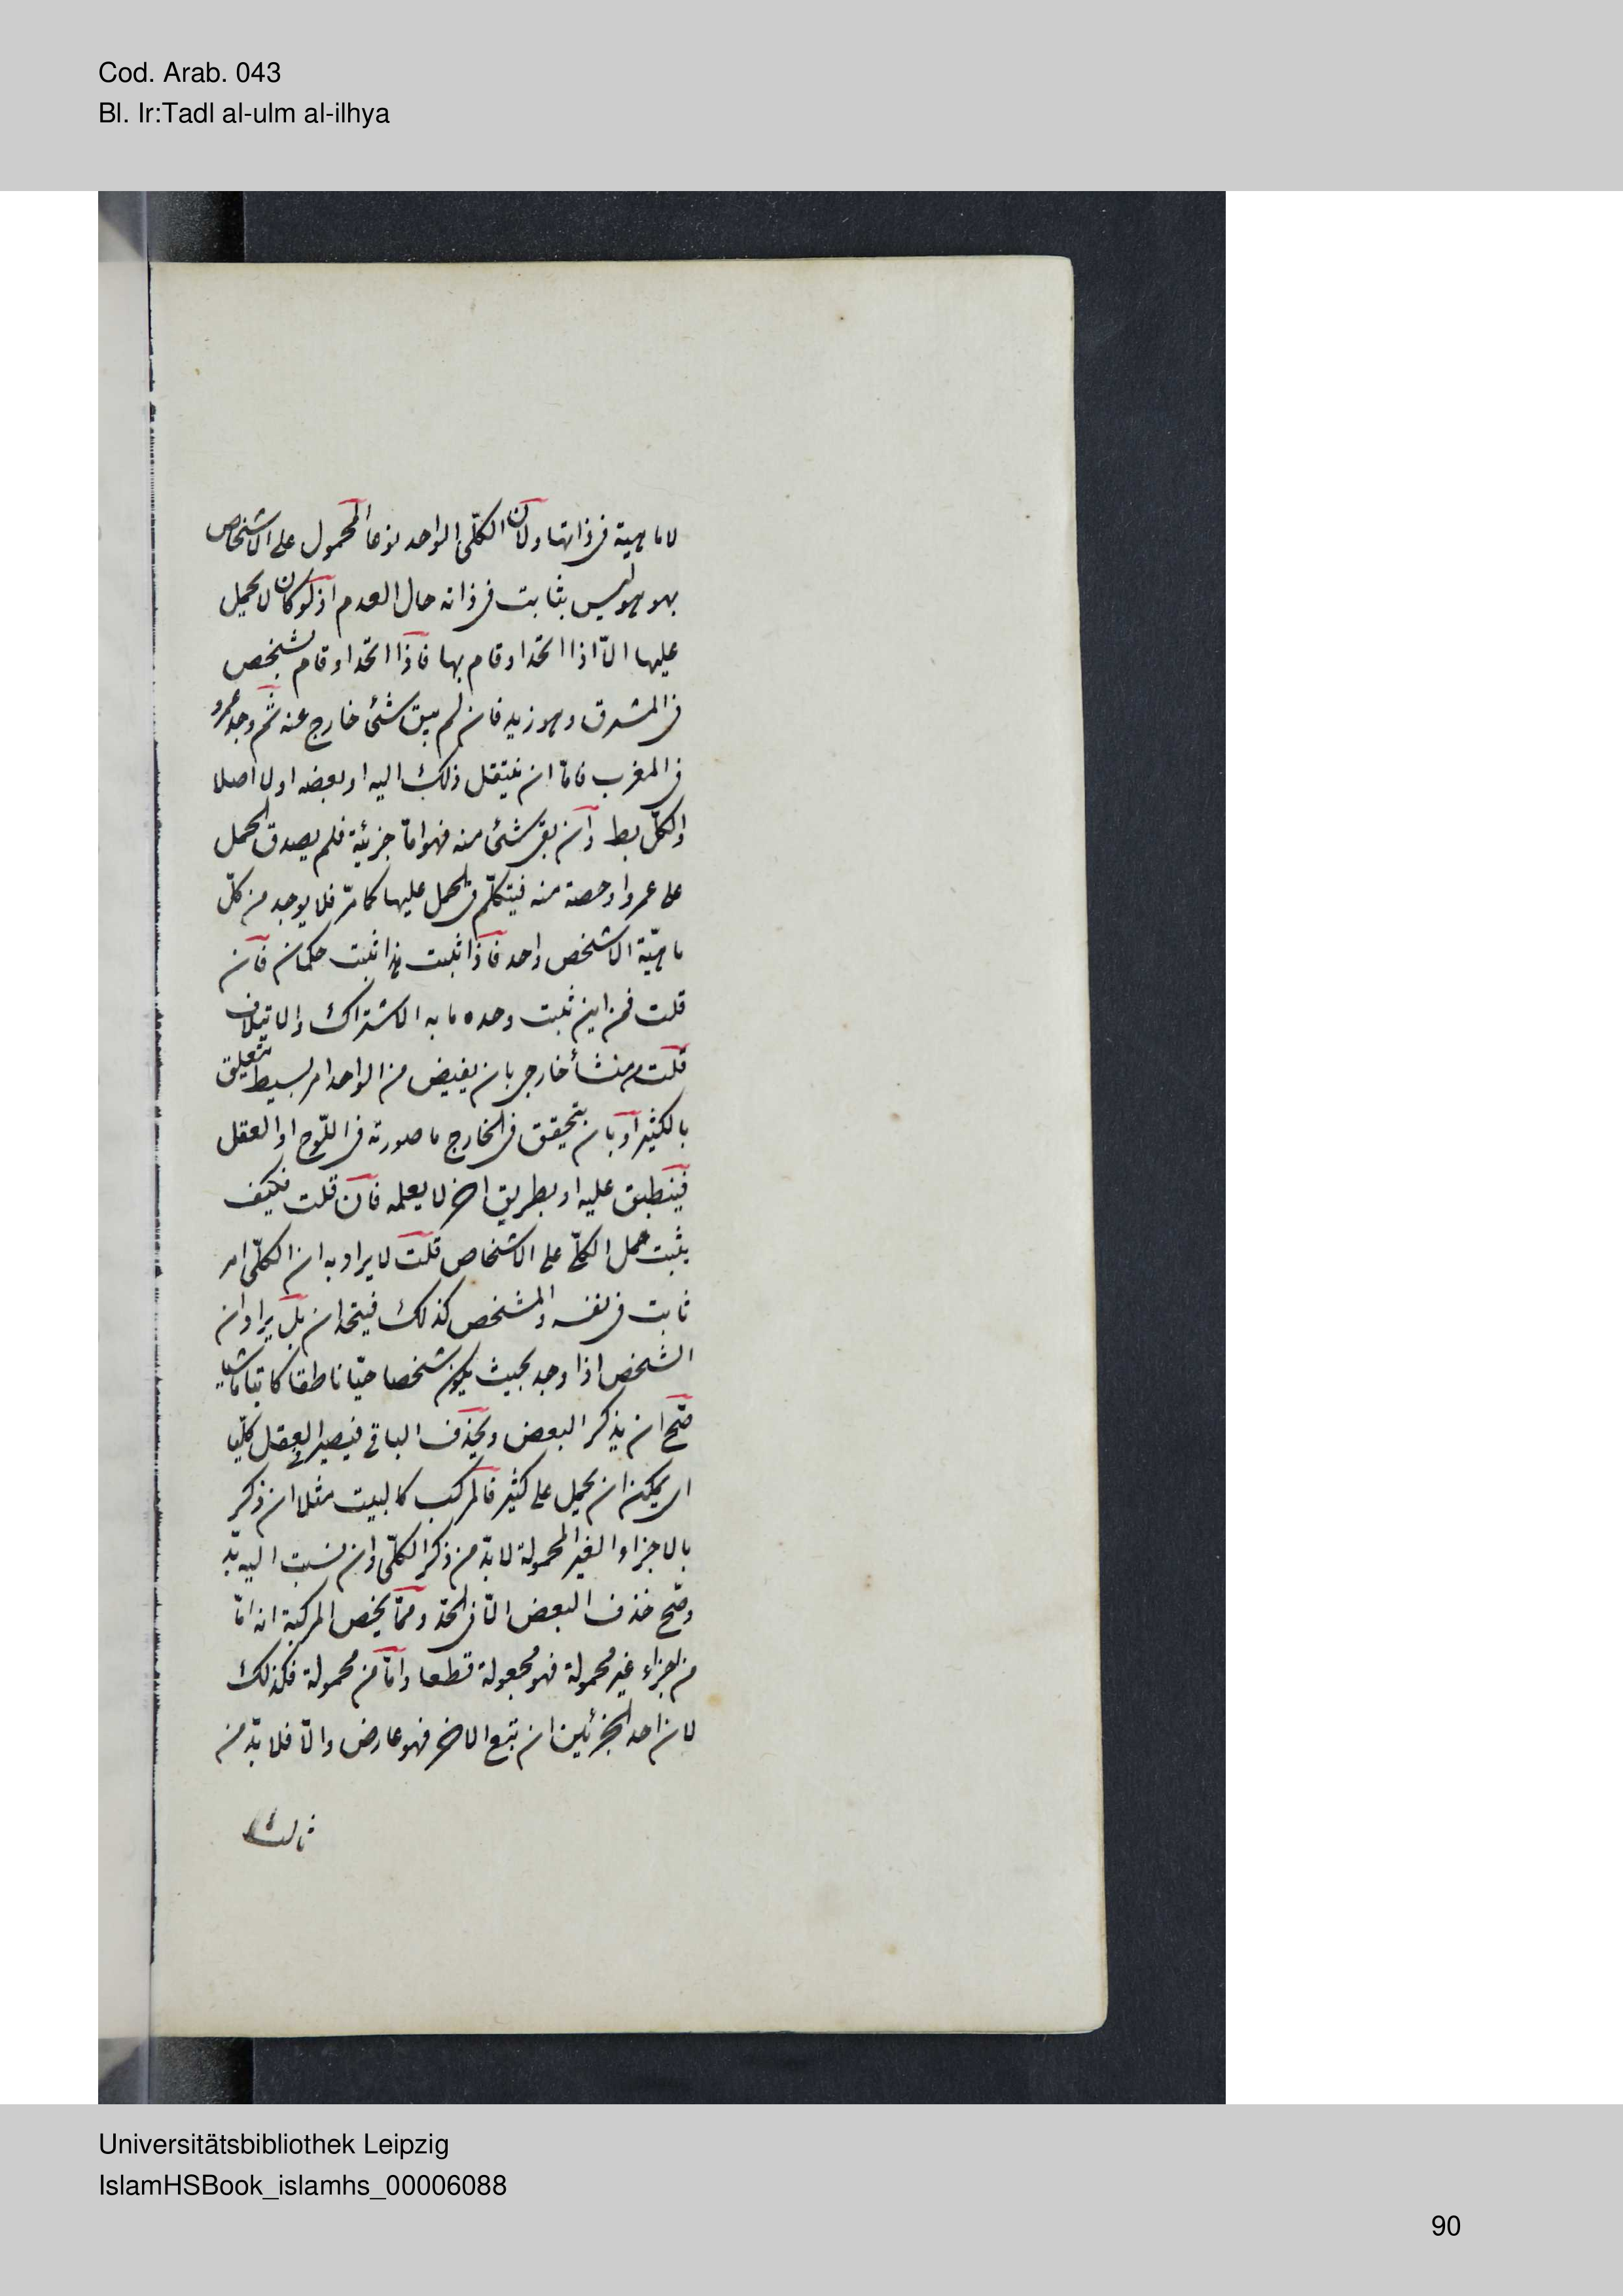 Cod. Arab. 043
Bl. Ir:Tadl al-ulm al-ilhya
لا ماهية فى ذاتها ولان الكلّى الواحد نوعا المحمول على الاشخاص
بهو هو ليس بثابت فى ذاته حال العدم اذ لو كان لا يحمل
عليها الّا اذا اتحد او قام بها فاذا اتحد او قام بشخص
فى المشرق وهو زيد فان لم يبق شئ خارج عنه ثم وجد عمرو
فى المغرب فامّا ان ينتقل ذلك اليه او بعضه او لا اصلا
والكلّ بط وان بقى شئ منه فهو امّا جزئية فلم يصدق الحمل
على عمرو او حصة منه فيتكلّم فى الحمل عليها كما مرّ فلا يوجد من كلّ
ماهيّة الا شخص واحد فاذا ثبت هذا ثبت حكمان فان
قلت فمن اين ثبت وحده ما به الاشتراك والايتلاف
قلت من منشأ خارجى بان يفيض من الواحد امر بسيط يتعلق
بالكثير او بان يتحقق فى الخارج ما صورته فى اللّوح او العقل
فينطبق عليه او بطريق اخر لا يعلمه فان قلت فكيف
يثبت حمل الكلّى على الاشخاص قلت لا يراد به ان الكلّى امر
ثابت فى نفسه والمشخص كذلك فيتحدان بل يراد ان
الشخص اذا وجد بحيث يكون شخصا حيّا ناطقا كاتبا ماشيا
صّح ان يذكر البعض ويحذف الباقى فيصير فى العقل كلّيا
اى يمكن ان يحمل على كثير فالمركب كالبيت مثلا ان ذكر
بالاجزاء الغير المحمولة لا بدّ من ذكر الكلّى وان نسبت اليه بذ
وصّح حذف البعض الّا فى الحدّ وممّا يخص المركبة انه امّا
من اجزاء غير محمولة فهو مجعولة قطعا وامّا من محمولة فكذلك
لان احد الجزئين ان تبع الاخر فهو عارض والّا فلا بدّ من
ثالث
Universitätsbibliothek Leipzig
IslamHSBook_islamhs_00006088
90